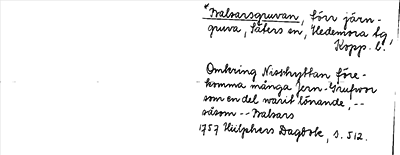 *Kalvarsgruvan, förr järn-
gruva, Säters sn, Hedemora tg,
Kopp. l.
Omkring Nisshyttan före-
komma många Jern-Grufvor
som en del warit lönande, --
såsom -- Kalvars
1757 Hülphers Dagbok, s. 512.